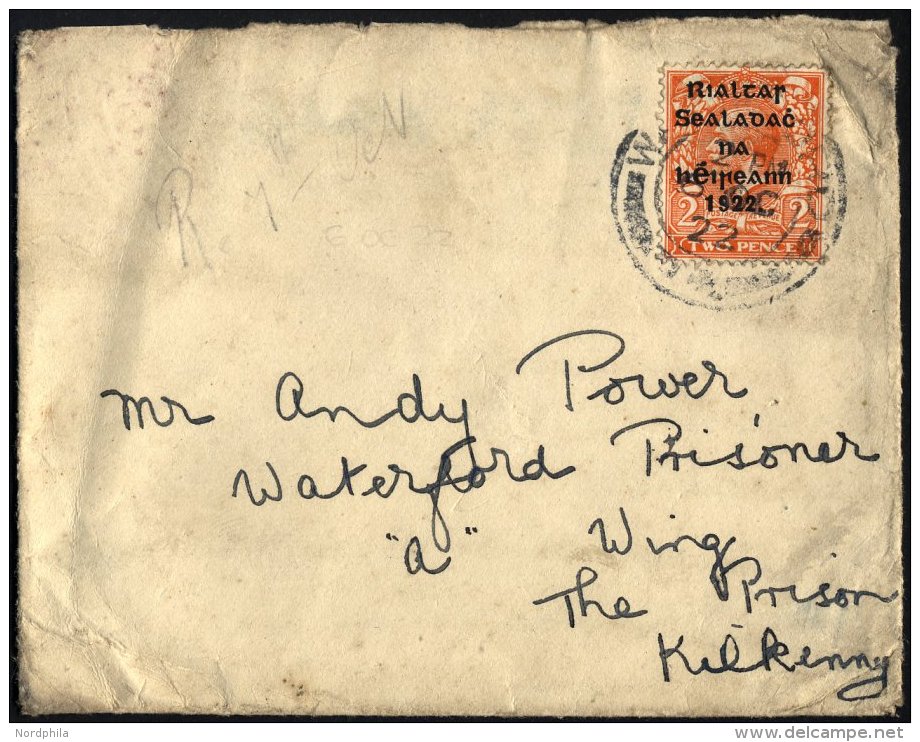 Rialtas
Sealadaċ
na
hÉireann
1922
2 2
TWO PENCE
2 PM
22
Mr Andy Power
Waterford Prisoner
"A" Wing
The Prison
Kilkenny
Nordphila
delcampe.net